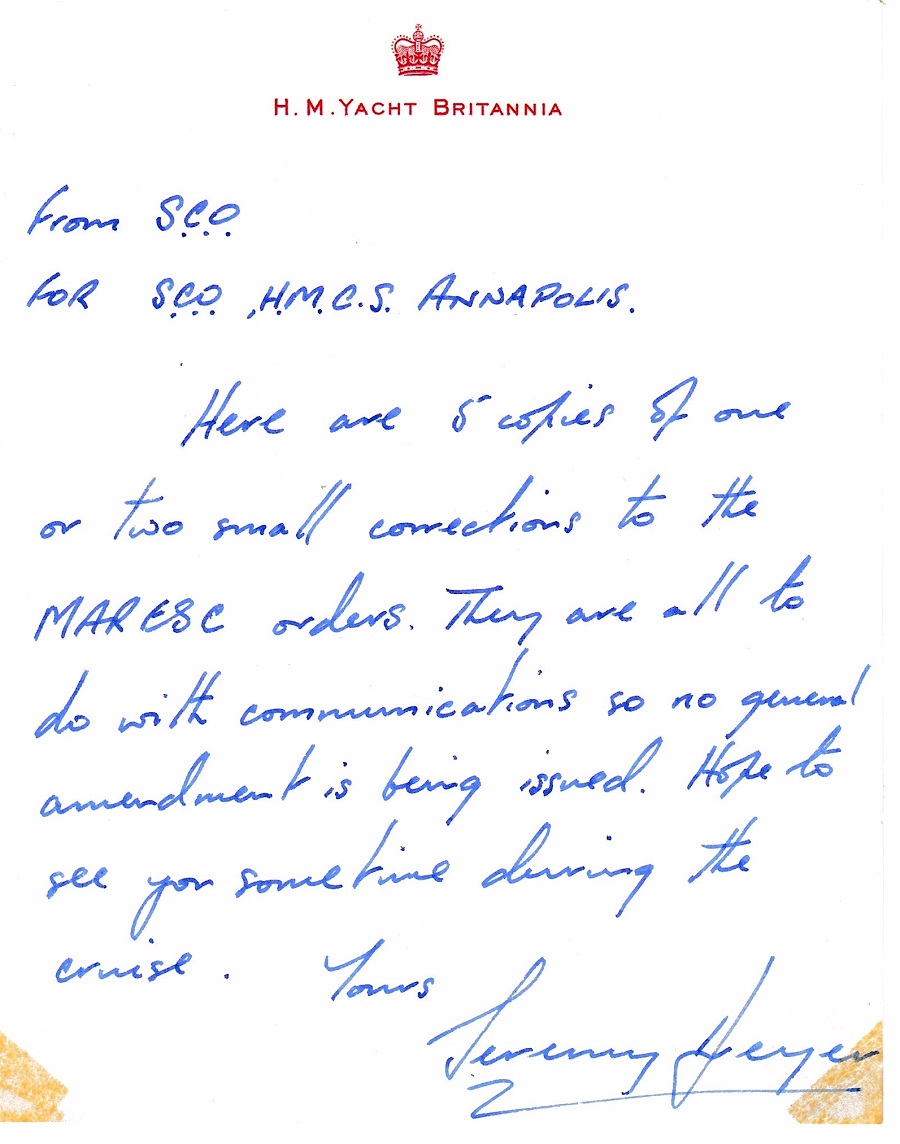 H. M. YACHT BRITANNIA
From S.C.O.
FOR S.C.O., H.M.C.S. ANNAPOLIS.
Here are 5 copies of one
or two small corrections to the
MARESC orders. They are all to
do with communications so no general
amendment is being issued. Hope to
see you sometime during the
cruise. Yours
Jeremy